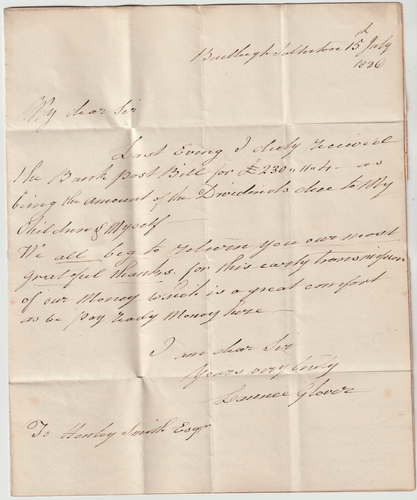 Budleigh Salterton 15th July
1826
My dear Sir
Last Evening I duly received
the Bank Post Bill for £230 " 11 " 4 - as
being the amount of the Dividends due to My
Children & Myself
We all beg to return you our most
grateful thanks. for this early transmission
of our Money which is a great comfort
as we pay ready Money here -
I am dear Sir
Yours very truly
Glover
To Henley Smith Esqr